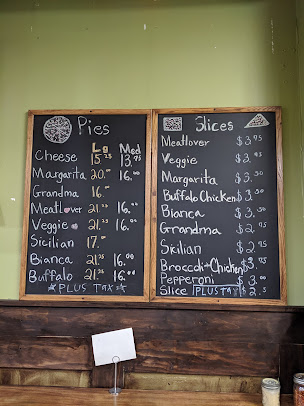 Pies
Lg Med
Cheese 15.25 13.75
Margarita 20.00 16.00
Grandma 16.00
Meatlover 21.25 16.00
Veggie 21.25 16.00
Sicilian 17.00
Bianca 21.25 16.00
Buffalo 21.25 16.00
PLUS TAX
Slices
Meatlover $3.95
Veggie $3.95
Margarita $3.50
Buffalo Chicken $3.50
Bianca $3.50
Grandma $2.95
Sicilian $2.95
Broccoli + Chicken
Pepperoni $3.00
Slice PLUS TAX